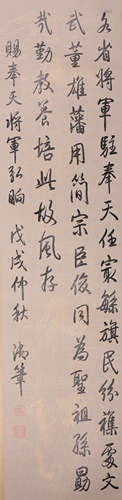 各省將軍駐奉天任最繁旗民紛襍處文
武董雄藩用簡宗臣後同為聖祖孫勗
哉勤教養培此故風存
賜奉天將軍弘晌 戊戌仲秋 御筆